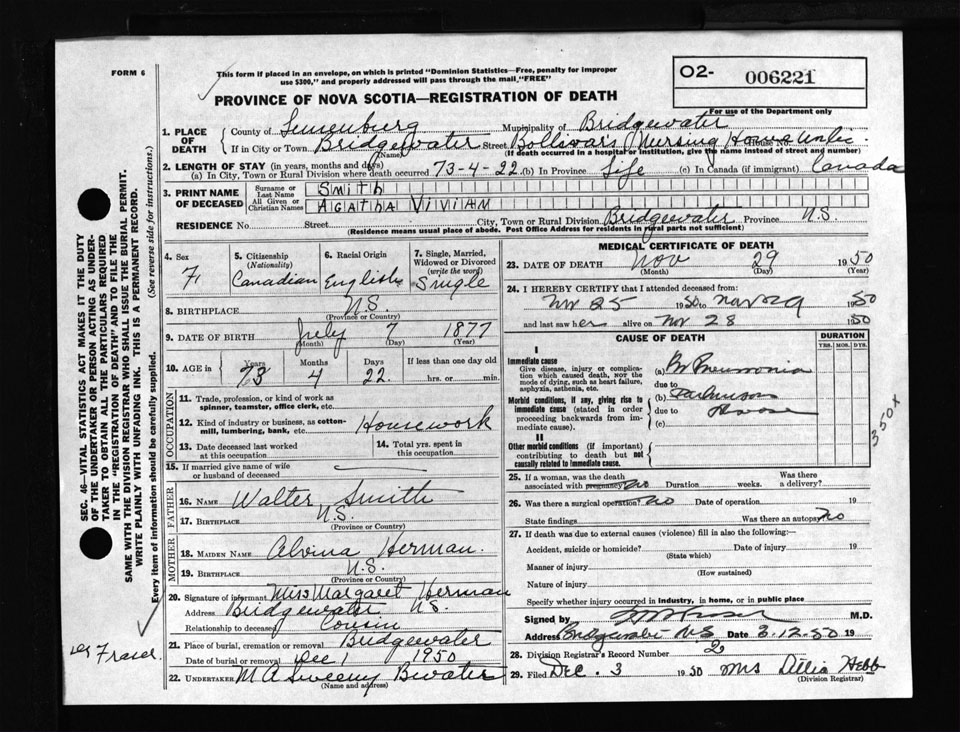 FORM 6
This form if placed in an envelope, on which is printed "Dominion Statistics—Free, penalty for improper
use $300," and properly addressed will pass through the mail, "FREE"
PROVINCE OF NOVA SCOTIA—REGISTRATION OF DEATH
O2- 006221
For use of the Department only
1. PLACE OF DEATH
County of Lunenburg Municipality of Bridgewater
If in City or Town Bridgewater Street Bollivars Nursing Home House No.
(Name) (If death occurred in a hospital or institution, give the name instead of street and number)
2. LENGTH OF STAY (in years, months and days)
(a) In City, Town or Rural Division where death occurred 73-4-22 (b) In Province Life (c) In Canada (if immigrant) Canada
3. PRINT NAME OF DECEASED
Surname or Last Name Smith
All Given or Christian Names AGATHA VIVIAN
RESIDENCE No. Street City, Town or Rural Division Bridgewater Province N.S.
(Residence means usual place of abode. Post Office Address for residents in rural parts not sufficient)
4. Sex F
5. Citizenship (Nationality) Canadian
6. Racial Origin English
7. Single, Married, Widowed or Divorced (write the word) Single
8. BIRTHPLACE N.S.
(Province or Country)
9. DATE OF BIRTH July 7 1877
(Month) (Day) (Year)
10. AGE in Years 73 Months 4 Days 22 If less than one day old hrs. or min.
OCCUPATION
11. Trade, profession or kind of work as
spinner, teamster, office clerk, etc.
12. Kind of industry or business, as cotton-
mill, lumbering, bank, etc. Housework
13. Date deceased last worked
at this occupation
14. Total yrs. spent in
this occupation
15. If married give name of wife
or husband of deceased
FATHER
16. NAME Walter Smith
17. BIRTHPLACE N.S.
(Province or Country)
MOTHER
18. MAIDEN NAME Alvina Herman.
19. BIRTHPLACE N.S.
(Province or Country)
20. Signature of informant Miss Margaret Herman
Address Bridgewater N.S.
Relationship to deceased Cousin
21. Place of burial, cremation or removal Bridgewater
Date of burial or removal Dec 1 1950
22. UNDERTAKER M A Sweeny Bwater
(Name and address)
MEDICAL CERTIFICATE OF DEATH
23. DATE OF DEATH Nov 29 1950
(Month) (Day) (Year)
24. I HEREBY CERTIFY that I attended deceased from:
Nov 25 1950 to Nov 29 1950
and last saw her alive on Nov 28 1950
CAUSE OF DEATH
DURATION
YRS. MOS. DYS.
I
Immediate cause
Give disease, injury or complica-
tion which caused death, NOT the
mode of dying, such as heart failure,
asphyxia, asthenia, etc.
(a) Br Pneumonia
due to
Morbid conditions, if any, giving rise to
immediate cause (stated in order
proceeding backwards from im-
mediate cause).
(b) Parkinsons
due to
(c)
II
Other morbid conditions (if important)
contributing to death but not
causally related to immediate cause.
350+
25. If a woman, was the death
associated with pregnancy? no Duration weeks. Was there a delivery?
26. Was there a surgical operation? no Date of operation 19
State findings Was there an autopsy? no
27. If death was due to external causes (violence) fill in also the following:—
Accident, suicide or homicide? Date of injury 19
(State which)
Manner of injury
(How sustained)
Nature of injury
Specify whether injury occurred in industry, in home, or in public place
Signed by M.D.
Address Bridgewater N.S Date 3-12-50 19
28. Division Registrar's Record Number 2
29. Filed Dec. 3 1950 Mrs Hebb
(Division Registrar)
SEC. 46—VITAL STATISTICS ACT MAKES IT THE DUTY
OF THE UNDERTAKER OR PERSON ACTING AS UNDER-
TAKER TO OBTAIN ALL THE PARTICULARS REQUIRED
IN THE "REGISTRATION OF DEATH" AND TO FILE THE
SAME WITH THE DIVISION REGISTRAR WHO SHALL ISSUE THE BURIAL PERMIT.
WRITE PLAINLY WITH UNFADING INK. THIS IS A PERMANENT RECORD.
Every item of information should be carefully supplied. (See reverse side for instructions.)
Fraser